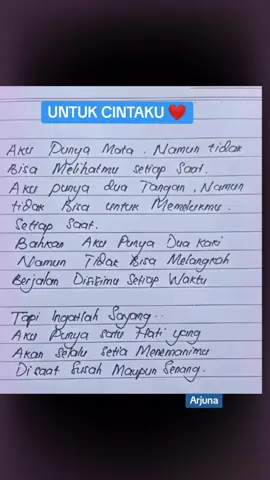 UNTUK CINTAKU ❤️
Aku Punya Mata. Namun tidak
Bisa Melihatmu setiap Saat.
Aku punya dua Tangan, Namun
tidak Bisa untuk Memelukmu.
Setiap Saat.
Bahkan Aku Punya Dua Kaki
Namun Tidak Bisa Melangkah
Berjalan Disisimu Setiap Waktu
Tapi Ingatlah Sayang..
Aku Punya satu Hati yang
Akan Selalu Setia Menemanimu
Disaat Susah Maupun Senang.
Arjuna